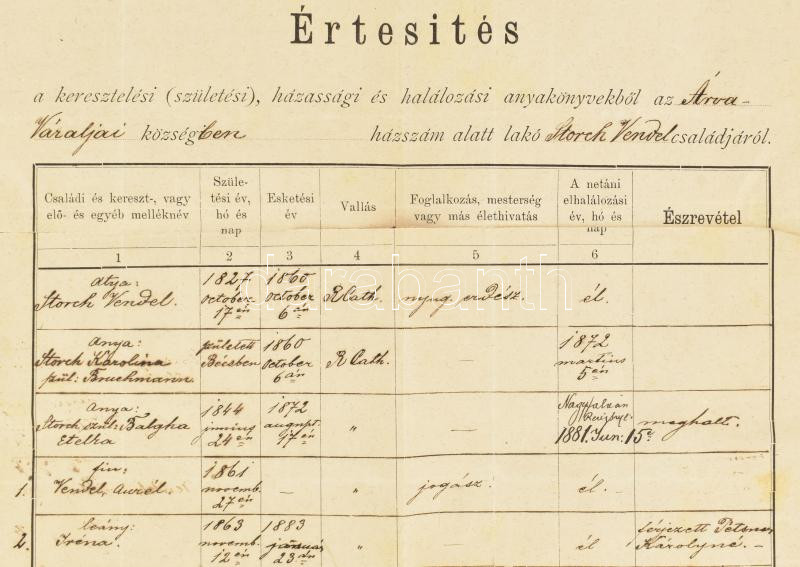 Értesités
a keresztelési (születési), házassági és halálozási anyakönyvekből az Árva-
Váraljai községben házszám alatt lakó Storch Vendel családjáról.
Családi és kereszt-, vagy elő- és egyéb melléknév
Születési év, hó és nap
Esketési év
Vallás
Foglalkozás, mesterség vagy más élethivatás
A netáni elhalálozási év, hó és nap
Észrevétel
1 2 3 4 5 6
atya:
Storch Vendel.
1827
october
17én
1860
october
6án
R Cath.
nyug. erdész.
él.
anya:
Storch Karolina
szül: Bruchmann.
született
Bécsben
1860
October
6án
R Cath.
—
1872
martius
5én
anya:
Storch szül:
Etelka
1844
junius
24én
1872
august.
17én
"
—
1881. Jun: 15é
meghalt.
1.
fiu:
Vendel, Aurél.
1861
novemb.
27én
—
"
jogász.
él.
2.
leány:
Iréna.
1863
novemb.
12én
1883
január
23án
"
él
férjezett
Károlyné. —
darabanth